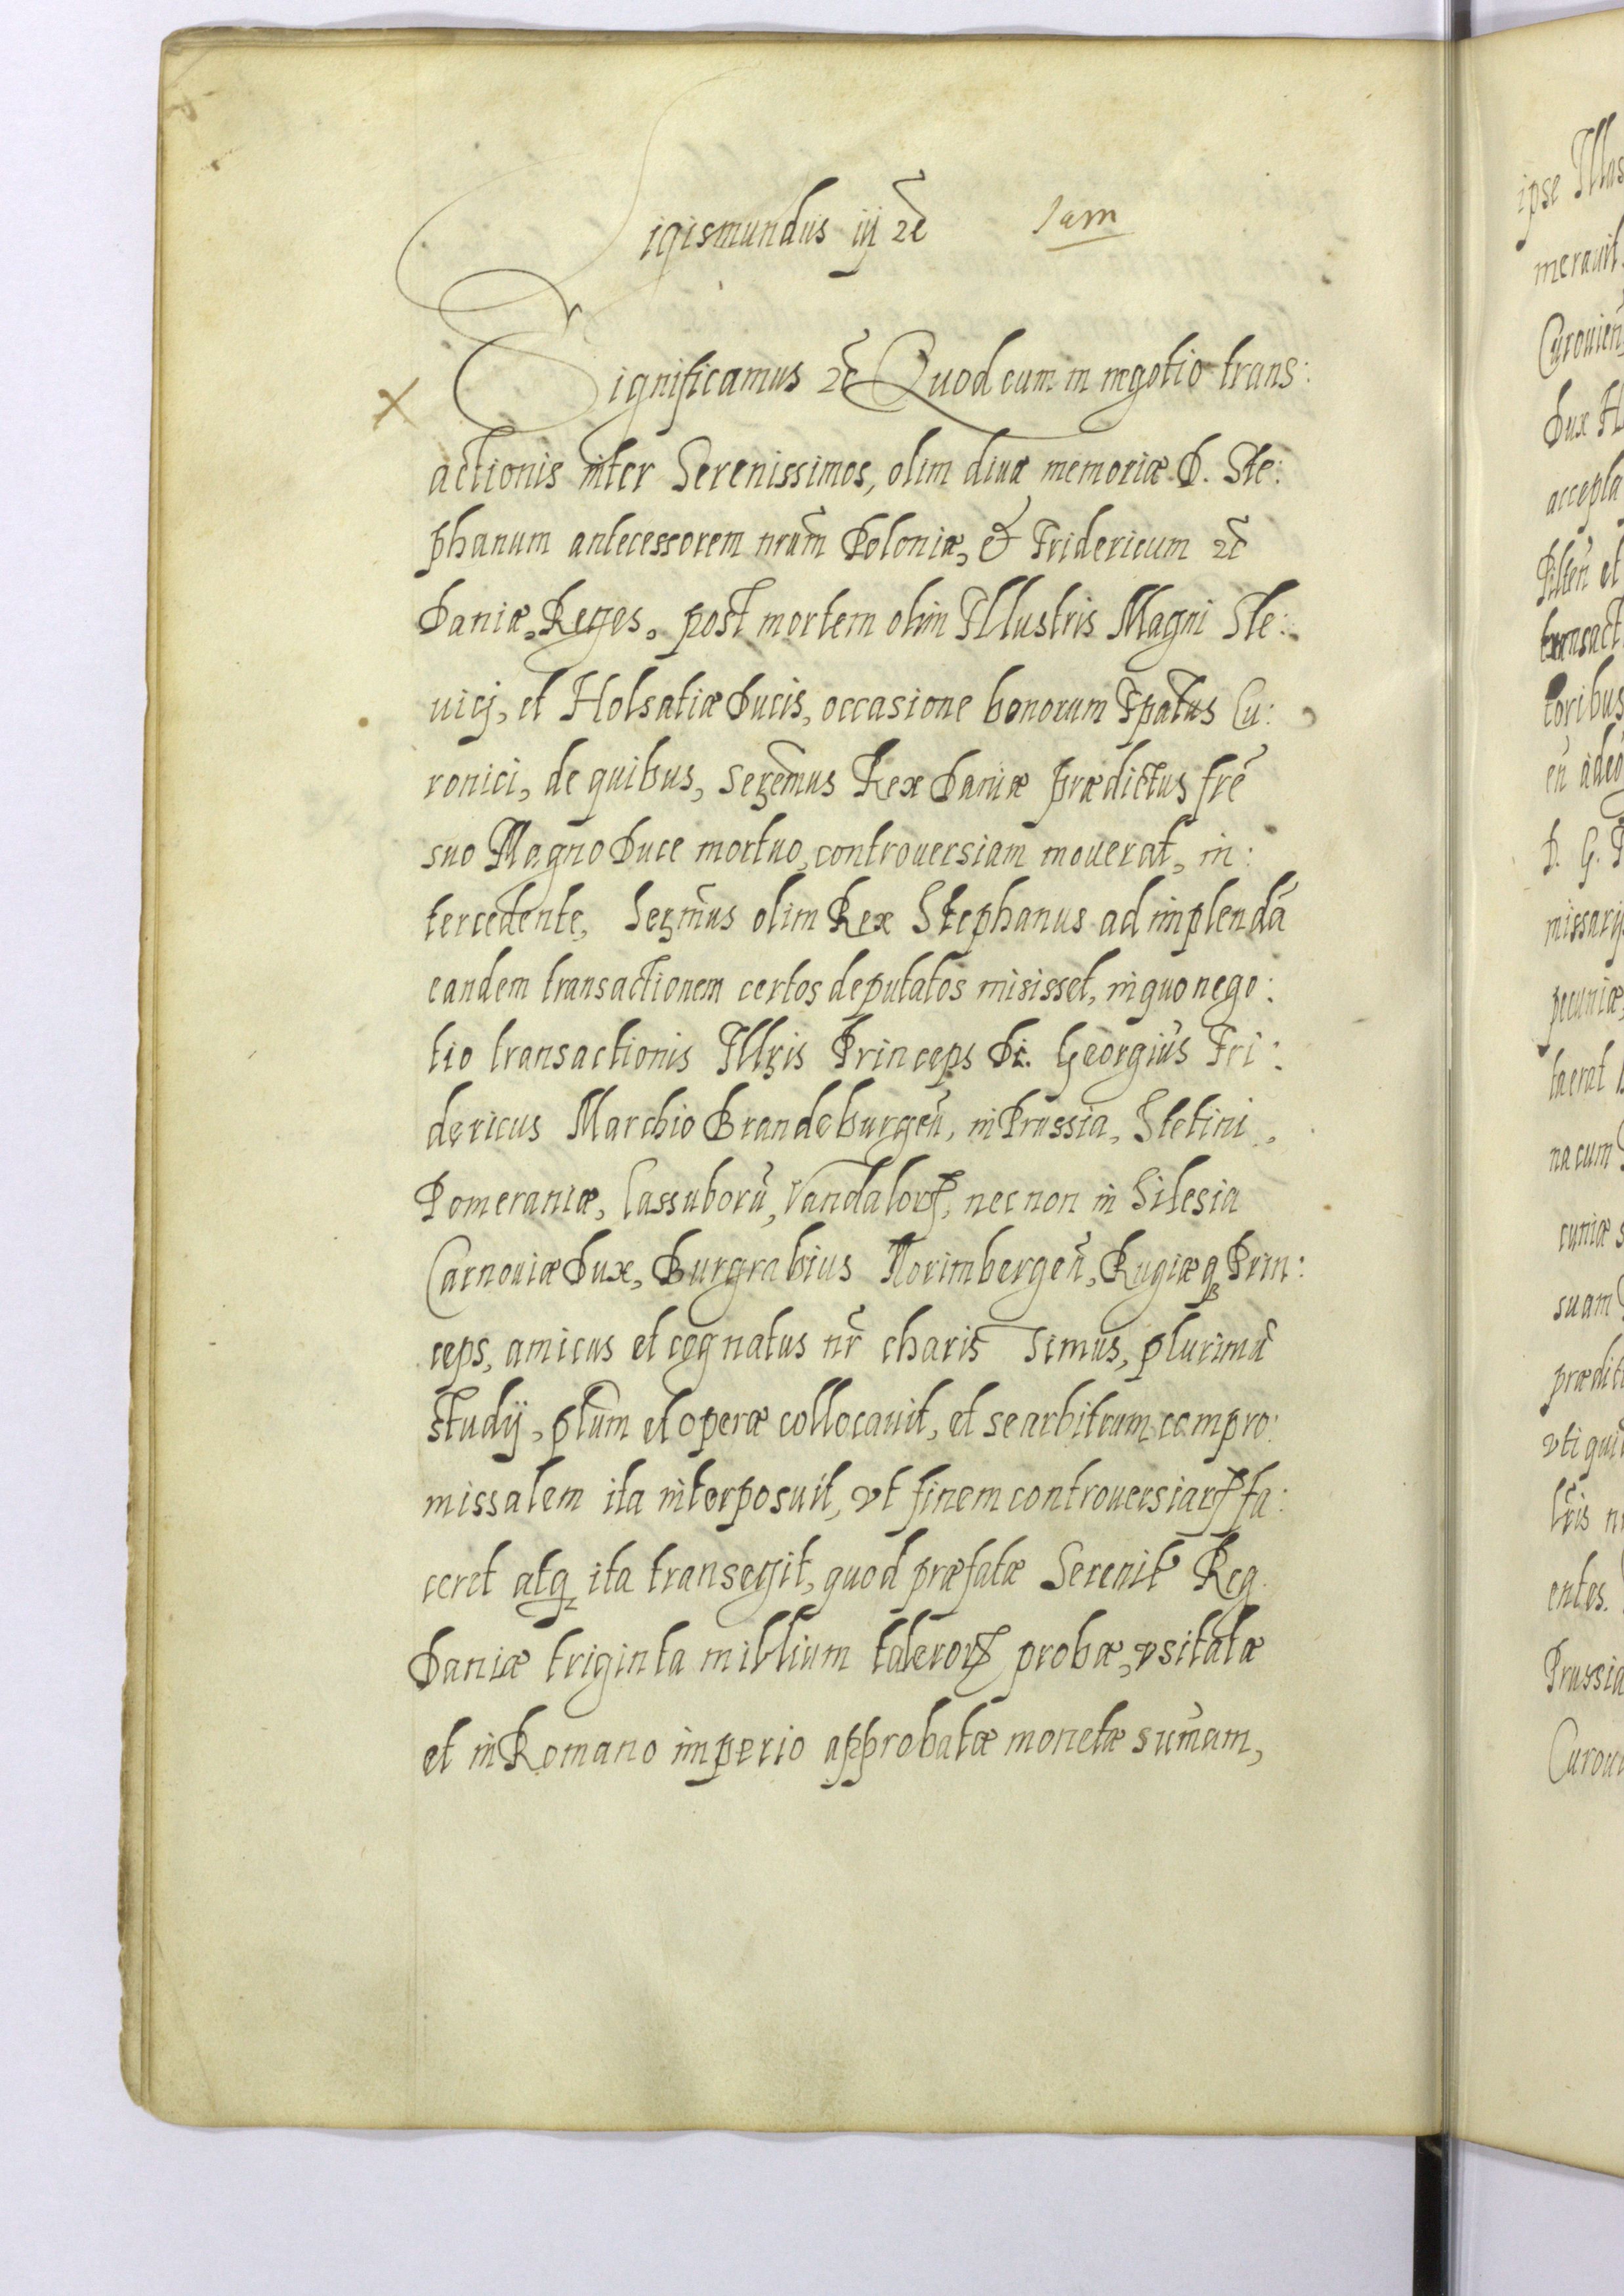 Sigismundus iij ꝛc̃ Iam
Significamus ꝛc̃ Quod cum in negotio trans:
actionis inter Serenissimos, olim diuæ memoriæ D. Ste:
phanum antecessorem nr̃um Poloniæ, & Fridericum ꝛc̃
Daniæ Reges. post mortem olim Illustris Magni Sle:
uicj, et Holsatiæ Ducis, occasione bonorum Ep̃atus Cu:
ronici, de quibus, Serẽmus Rex Daniæ prædictus frẽ
suo Magno Duce mortuo, controuersiam mouerat, in:
tercedente, Serm̃us olim Rex Stephanus ad implendã
eandem transactionem certos deputatos misisset, in quo nego:
tio transactionis Illris Princeps D. Georgius Fri:
dericus Marchio Brandeburgeñ, in Prussia, Stetini,
Pomeraniæ, Cassuborũ, Vandaloꝝ, nec non in Silesia
Carnouiæ Dux, Burgrabius Norimbergeñ, Rugiæqꝫ Prin:
ceps, amicus et cognatus nr̃ charissimus, plurimũ
studij, ꝓtũm et operæ collocauit, et se arbitrum compro:
missalem ita interposuit, vt finem controuersiaꝝ fa:
ceret atqꝫ ita transegit, quod præfatæ Serenit Reg.
Daniæ triginta millium taleroꝝ probæ, vsitatæ
et in Romano imperio approbatæ monetæ sum̃am,
ipse Illus
merauit
Dux H
accepta
Pilteñ et
transact
toribus
eñ adeo
D. G. F
missarij
pecuniæ,
na cum
cuniæ s
suam
prædit
vti qui
entes.
Prussia